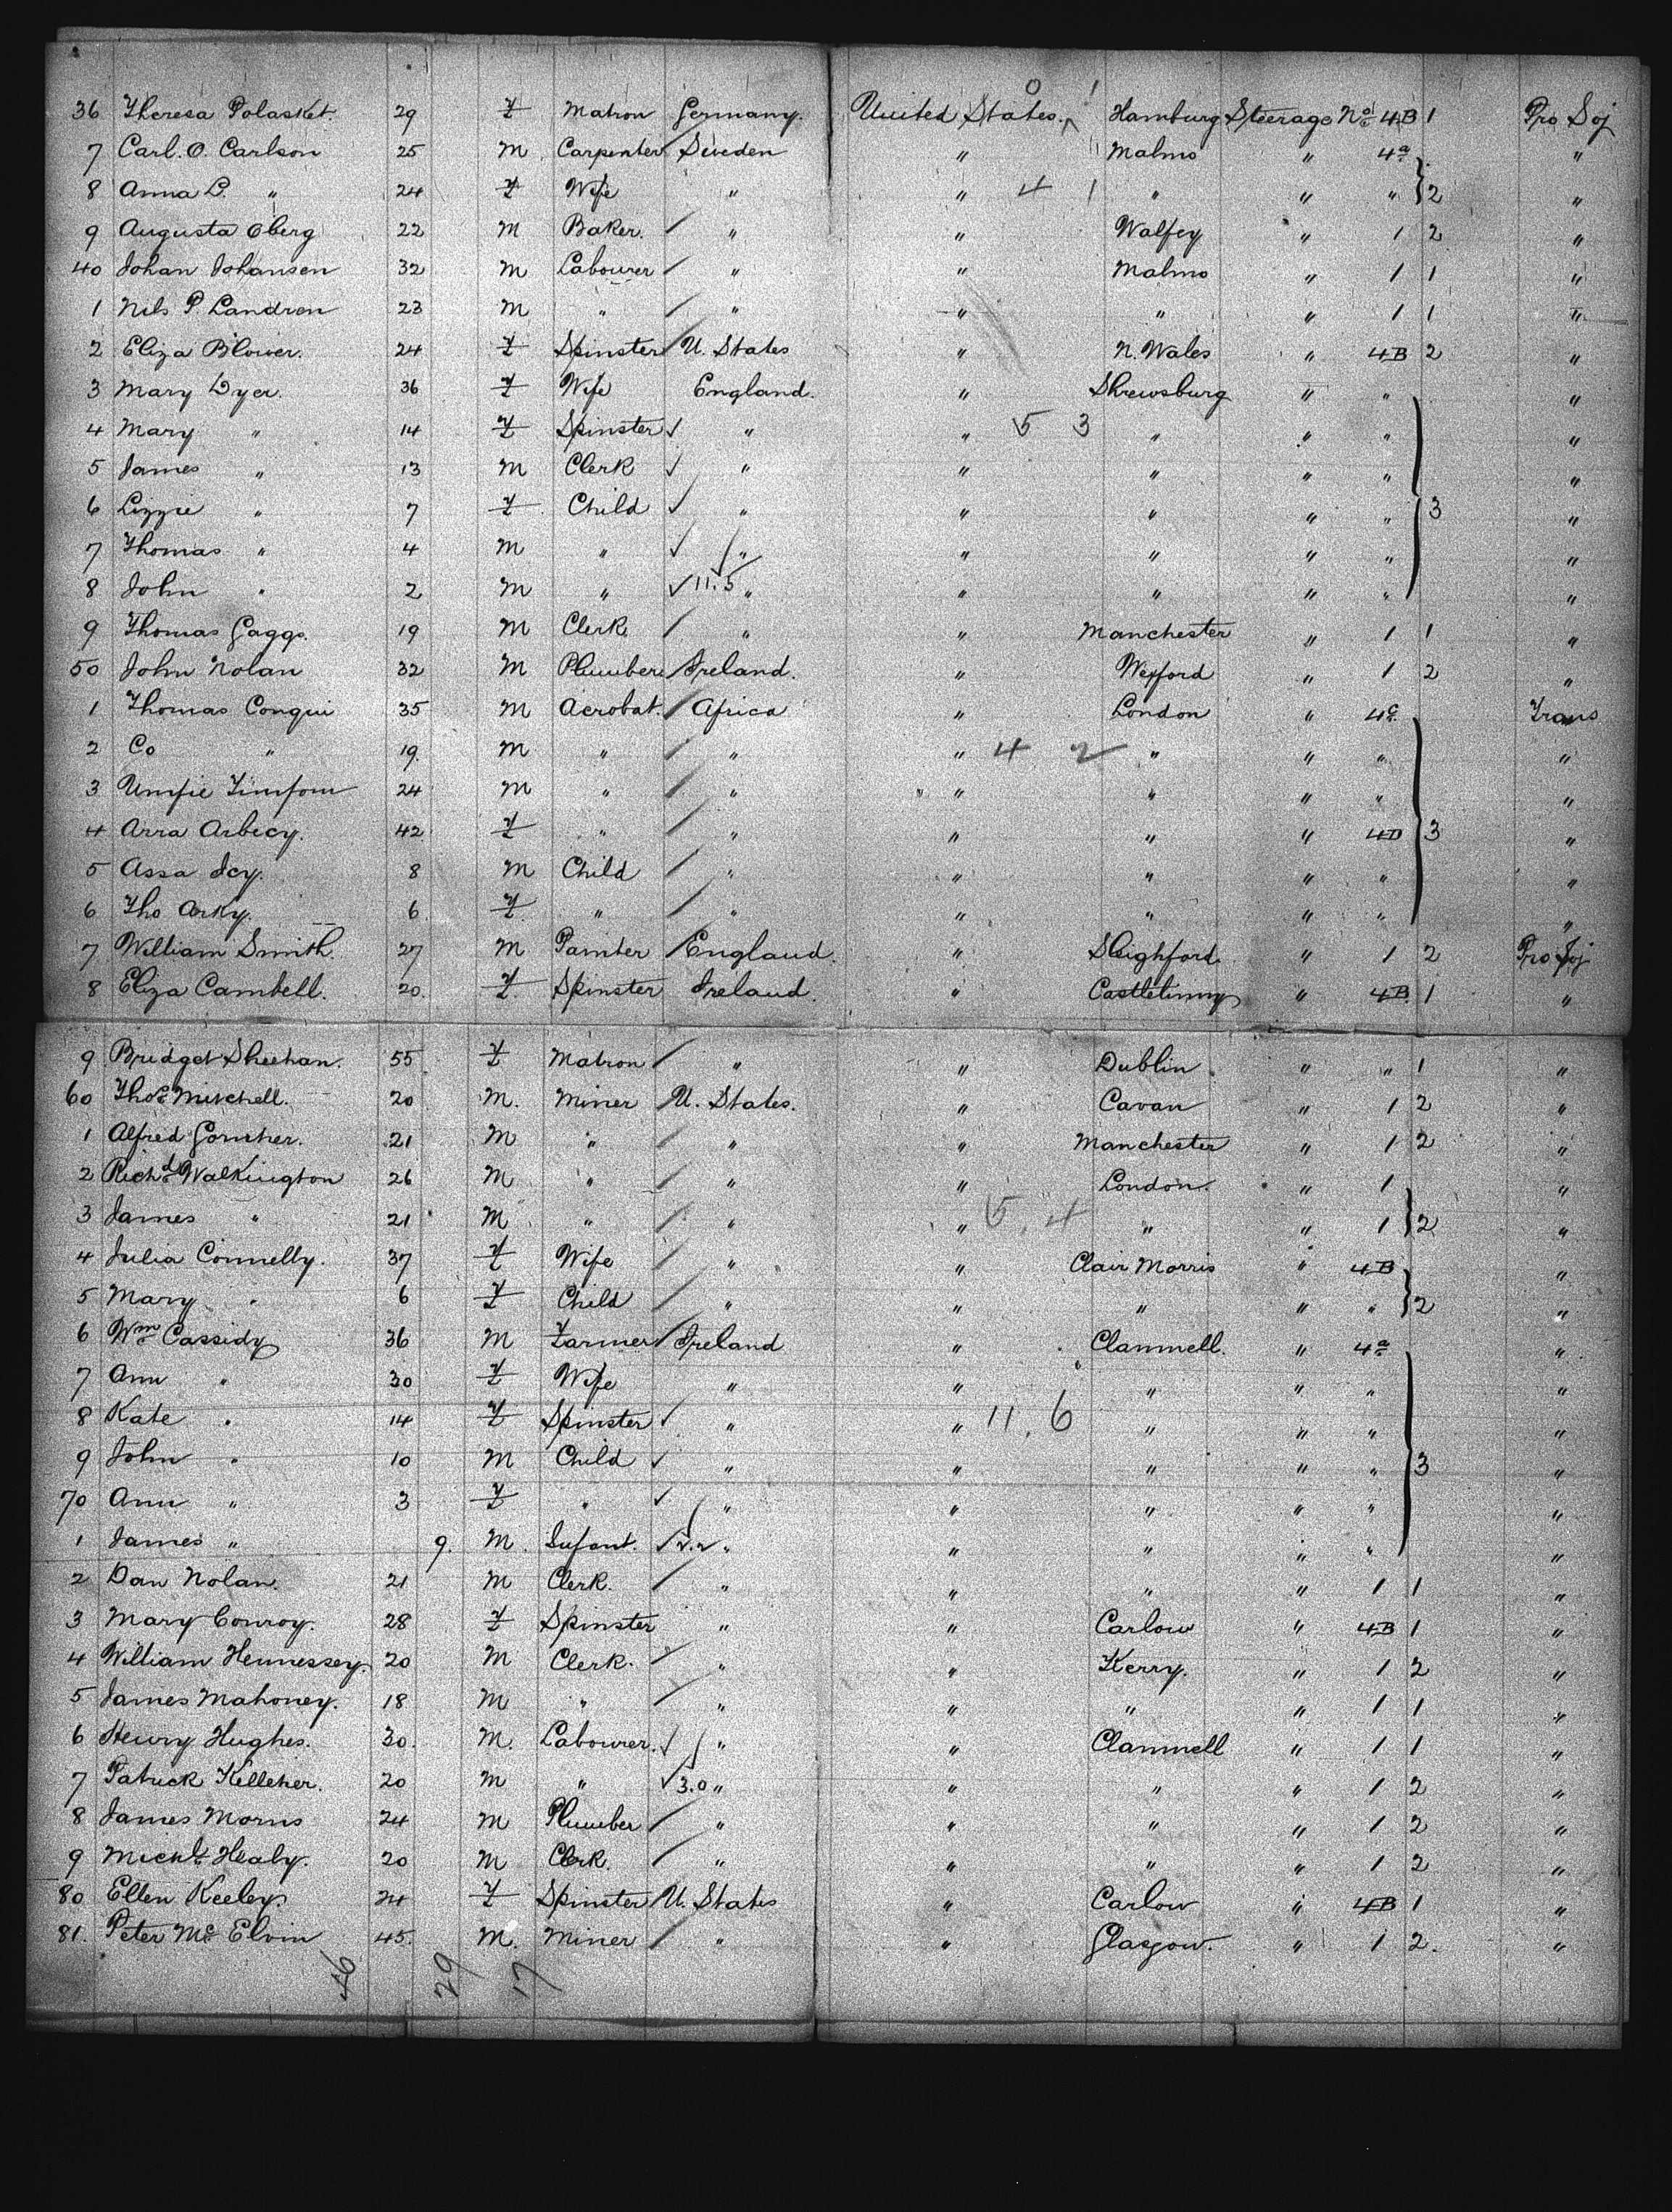 0 1
36 Theresa Polasket. 29 F Matron Germany. United States. Hamburg Steerage No 4B 1 Pro Soj
7 Carl. O. Carlson 25 M Carpenter Sweden " Malmo " 4a "
8 Anna L. " 24 F Wife " " 4 1 " " " 2 "
9 Augusta Oberg 22 M Baker. " " Walfey " 1 2 "
40 Johan Johansen 32 M Labourer " " Malmo " 1 1 "
1 Nils P. Landren 23 M " " " " " 1 1 "
2 Eliza Blower. 24 F Spinster U. States " N. Wales " 4B 2 "
3 Mary Dyer. 36 F Wife England. " Shrewsburg " " "
4 Mary " 14 F Spinster " " 5 3 " " " "
5 James " 13 M Clerk " " " " " "
6 Lizzie " 7 F Child " " " " " 3 "
7 Thomas " 4 M " " " " " " "
8 John " 2 M " 11.5 " " " " " "
9 Thomas Gaggs. 19 M Clerk " " Manchester " 1 1 "
50 John Nolan 32 M Plumber Ireland. " Wexford " 1 2 "
1 Thomas Conqui 35 M Acrobat. Africa " London " 4c Trans
2 Co " 19. M " " " 4 2 " " " "
3 Umfie Timfom 24 M " " " " " " "
4 Arra Arbecy. 42 F " " " " " 4D 3 "
5 Assa Jcy. 8 M Child " " " " " "
6 Tho Arky. 6 F " " " " " " "
7 William Smith. 27 M Painter England. " Sleighford " 1 2 Pro Soj
8 Eliza Cambell. 20. F Spinster Ireland. " Castletimny " 4B. 1 "
9 Bridget Sheehan. 55 F Matron " " Dublin " " 1 "
60 Thos Mitchell. 20 M. Miner U. States. " Cavan " 1 2 "
1 Alfred Gornher. 21 M " " " Manchester " 1 2 "
2 Richd Walkington 26 M " " " London. " 1 "
3 James " 21 M " " " 5 4 " " 1 2 "
4 Julia Connelly. 37 F Wife " " Clair Morris " 4B "
5 Mary " 6 F Child " " " " " 2 "
6 Wm Cassidy 36 M Farmer Ireland " Clanmell. " 4a "
7 Ann " 30 F Wife " " " " " "
8 Kate " 14 F Spinster " " 11. 6 " " " "
9 John " 10 M Child " " " " " 3 "
70 Ann " 3 F " " " " " " "
1 James " 9. M. Infant. 2.2 " " " " " "
2 Dan Nolan. 21 M Clerk. " " " " 1 1 "
3 Mary Conroy. 28 F Spinster " " Carlow " 4B 1 "
4 William Hennessey. 20 M Clerk. " " Kerry. " 1 2 "
5 James Mahoney. 18 M " " " " " 1 1 "
6 Henry Hughes. 30. M. Labourer. " " Clanmell " 1 1 "
7 Patrick Kelleher. 20 M " 3.0 " " " " 1 2 "
8 James Morris 24 M Plumber " " " " 1 2 "
9 Michl Healy. 20 M Clerk. " " " " 1 2 "
80 Ellen Keeley. 24 F Spinster U. States " Carlow " 4B 1 "
81. Peter Mc Elvin 45. M. Miner " " Glasgow. " 1 2. "
46 29 17